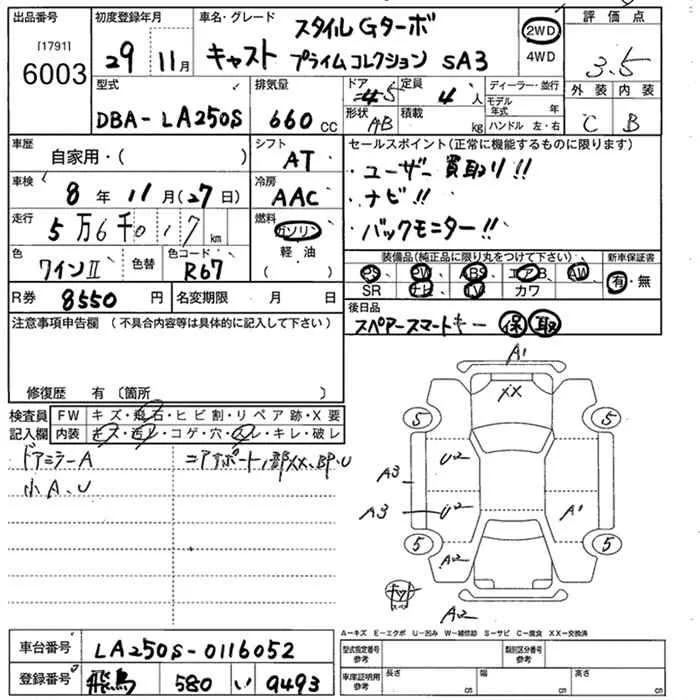 出品番号 初度登録年月 車名・グレード スタイル Gターボ 2WD 4WD 評価点
[1791]
6003 29 11月 キャスト プライムコレクション SA3 3.5
型式 排気量 ドア 定員 ディーラー・並行 外装 内装
DBA-LA250S 660cc 5 4人 モデル年式 年
形状 AB 積載 kg ハンドル 左・右 C B
車歴 シフト セールスポイント(正常に機能するものに限ります)
自家用・( ) AT ・ユーザー買取り!!
車検 8年 11月(27日) 冷房 AAC ・ナビ!!
走行 5万6千017km 燃料 ガソリン ・バックモニター!!
軽油
( )
色 ワインII 色替 色コード R67
装備品(純正品に限り丸をつけて下さい) 新車保証書
PS PW ABS エアB AW 有・無
SR ナビ TV カワ
R券 8550円 名変期限 月 日
後日品
スペアースマートキー 保 取
注意事項申告欄 (不具合内容等は具体的に記入して下さい)
修復歴 有(箇所 )
検査員 FW キズ・飛石・ヒビ割・リペア跡・X要
記入欄 内装 キズ・汚レ・コゲ・穴・スレ・キレ・破レ
ドアミラーA
小A、U
A1
XX
5 5
U2
A3
A3 U2 A1
5 5
A2
A2
A-キズ E-エクボ U-凹み W-補修跡 S-サビ C-腐食 XX-交換済
車台番号 LA250S-0116052
登録番号 飛鳥 580 い 9493
型式指定番号 参考 類別区分番号 参考
車庫証明用 参考 長さ cm 幅 cm 高さ cm